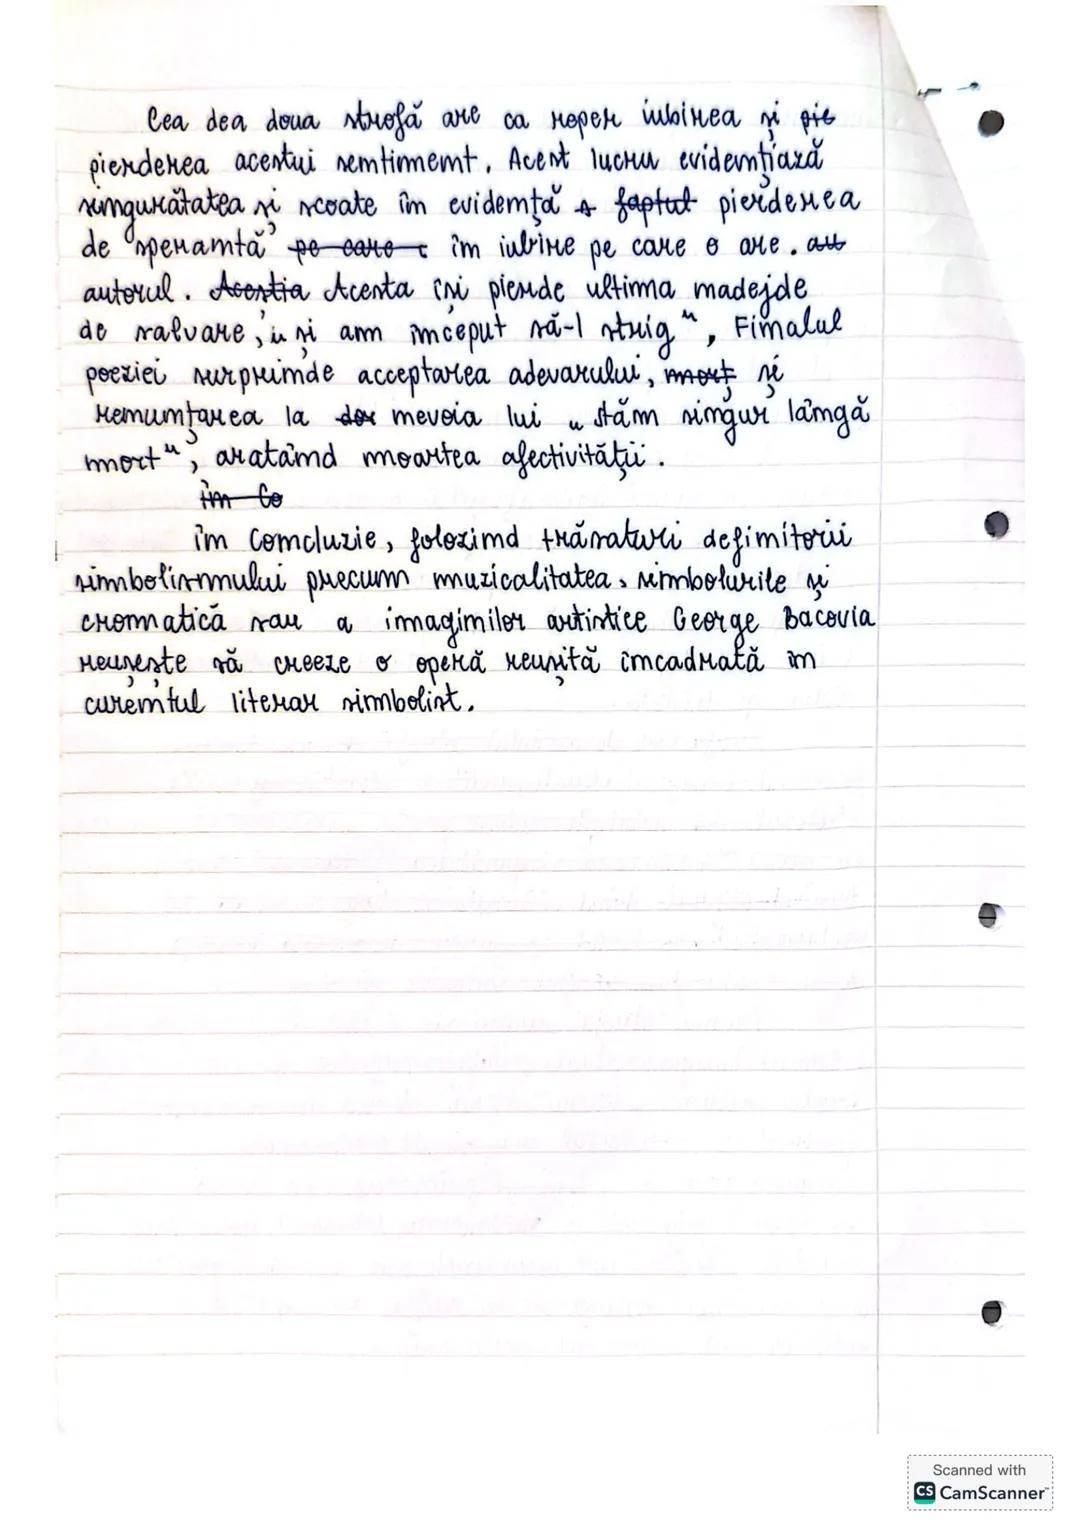 Cea dea doua strofă are ca reper iubirea și pie
pierderea acestui sentiment. Acest lucru evidențiază
singurătatea și scoate în evidență a faptul pierderea
de speranță pe care în iubire pe care o are. au
autorul. Acestia Acesta își pierde ultima nadejde
de salvare, „și am început să-l strig", Finalul
poeziei surprinde acceptarea adevarului, mort și
renunțarea la dor nevoia lui „stăm singur lângă
mort", aratând moartea afectivității.
în Co
în Concluzie, folosind trăsaturi definitorii
simbolismului precum muzicalitatea, simbolurile și
cromatică sau a imaginilor artistice George Bacovia
reușește să creeze o operă reușită încadrată în
curentul literar simbolist.
Scanned with
CS CamScanner